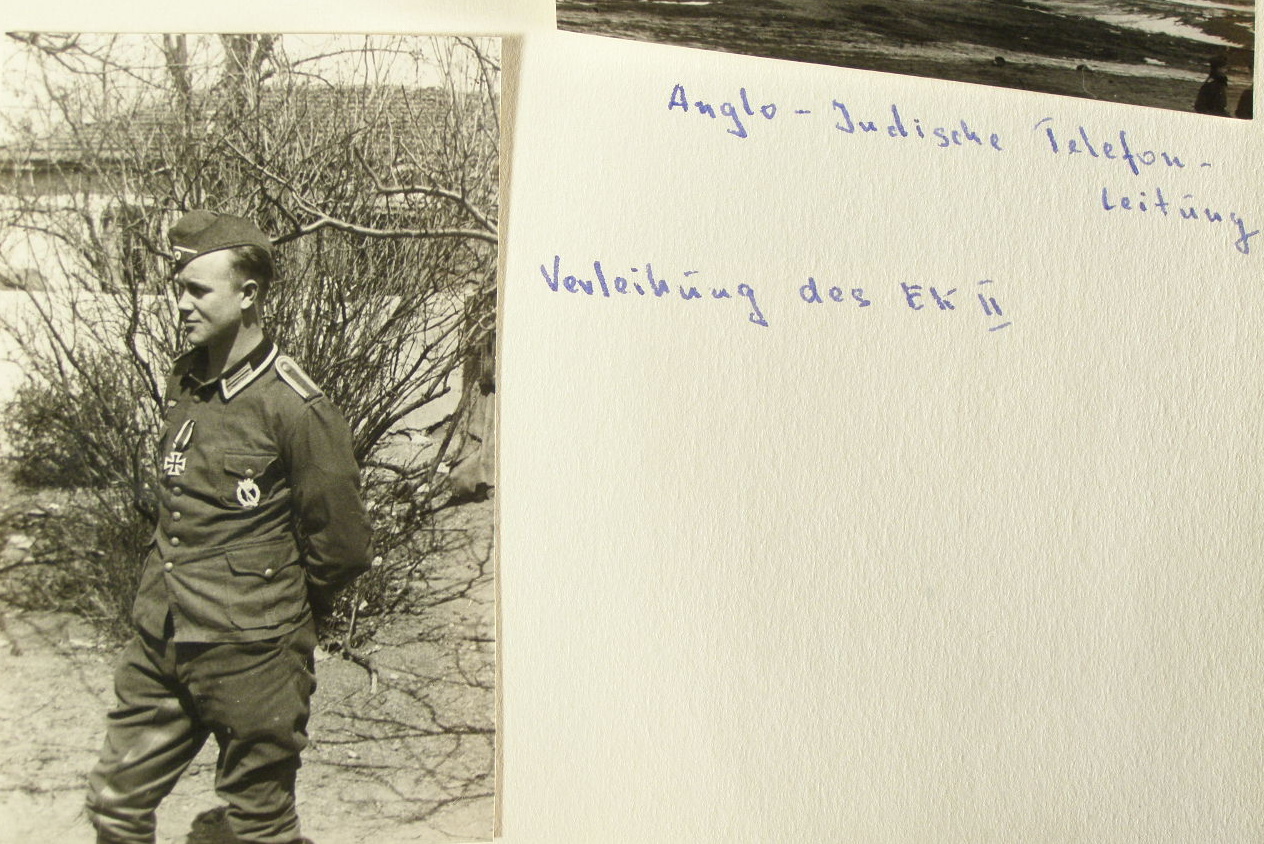 Anglo - Indische Telefon -
Leitung
Verleihung des EK II